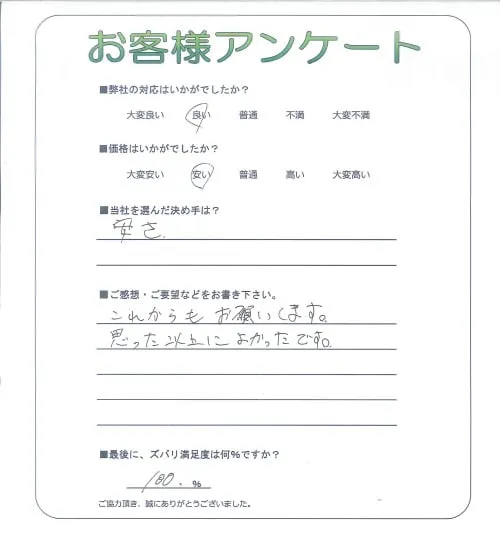 お客様アンケート
■弊社の対応はいかがでしたか？
大変良い 良い 普通 不満 大変不満
■価格はいかがでしたか？
大変安い 安い 普通 高い 大変高い
■当社を選んだ決め手は？
安さ.
■ご感想・ご要望などをお書き下さい。
これからもお願いします。
思った以上によかったです。
■最後に、ズバリ満足度は何%ですか？
100. %
ご協力頂き、誠にありがとうございました。